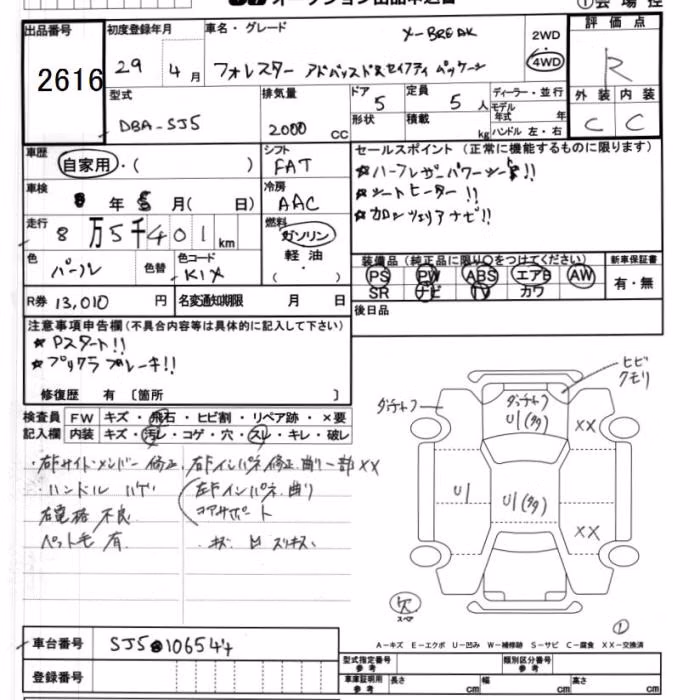 オークション出品申込書 ①会場控
出品番号 初度登録年月 車名・グレード X-BREAK 2WD 評価点
2616 29年4月 フォレスター アドバンスドセイフティ パッケージ 4WD R
型式 排気量 ドア 5 定員 5人 ディーラー・並行 外装 内装
DBA-SJ5 2000cc 形状 積載 kg モデル年式 年 ハンドル 左・右 C C
車歴 自家用・( ) シフト FAT セールスポイント(正常に機能するものに限ります)
☆ハーフレザーパワーシート!!
車検 年 月( 日) 冷房 AAC ☆シートヒーター!!
走行 8万5千401km 燃料 ガソリン ☆カロッツェリアナビ!!
色 パール 色替 色コード K1X 軽油・( )
装備品(純正品に限り○をつけてください) 新車保証書
PS PW ABS エアB AW 有・無
SR ナビ TV カワ
R券 13,010円 名変通知期限 月 日 後日品
注意事項申告欄(不具合内容等は具体的に記入して下さい)
☆Pスタート!!
☆プリクラブレーキ!!
修復歴 有〔箇所 〕
検査員 FW キズ・飛石・ヒビ割・リペア跡・×要
記入欄 内装 キズ・汚レ・コゲ・穴・スレ・キレ・破レ
・右Fサイドメンバー修正 右Fインパネ修正 曲り 一部XX
・ハンドル ハゲ 左Fインパネ 曲り
右電格 不良 コアサポート
ペット毛 有
ヒビ クモリ
ダッチャク ダッチャク
U1(多) XX
U1 U1(多)
XX
欠 スペア
①
A-キズ E-エクボ U-凹み W-補修跡 S-サビ C-腐食 XX-交換済
車台番号 SJ5
登録番号
型式指定番号 参考 類別区分番号 参考
車庫証明用 参考 長さ cm 幅 cm 高さ cm